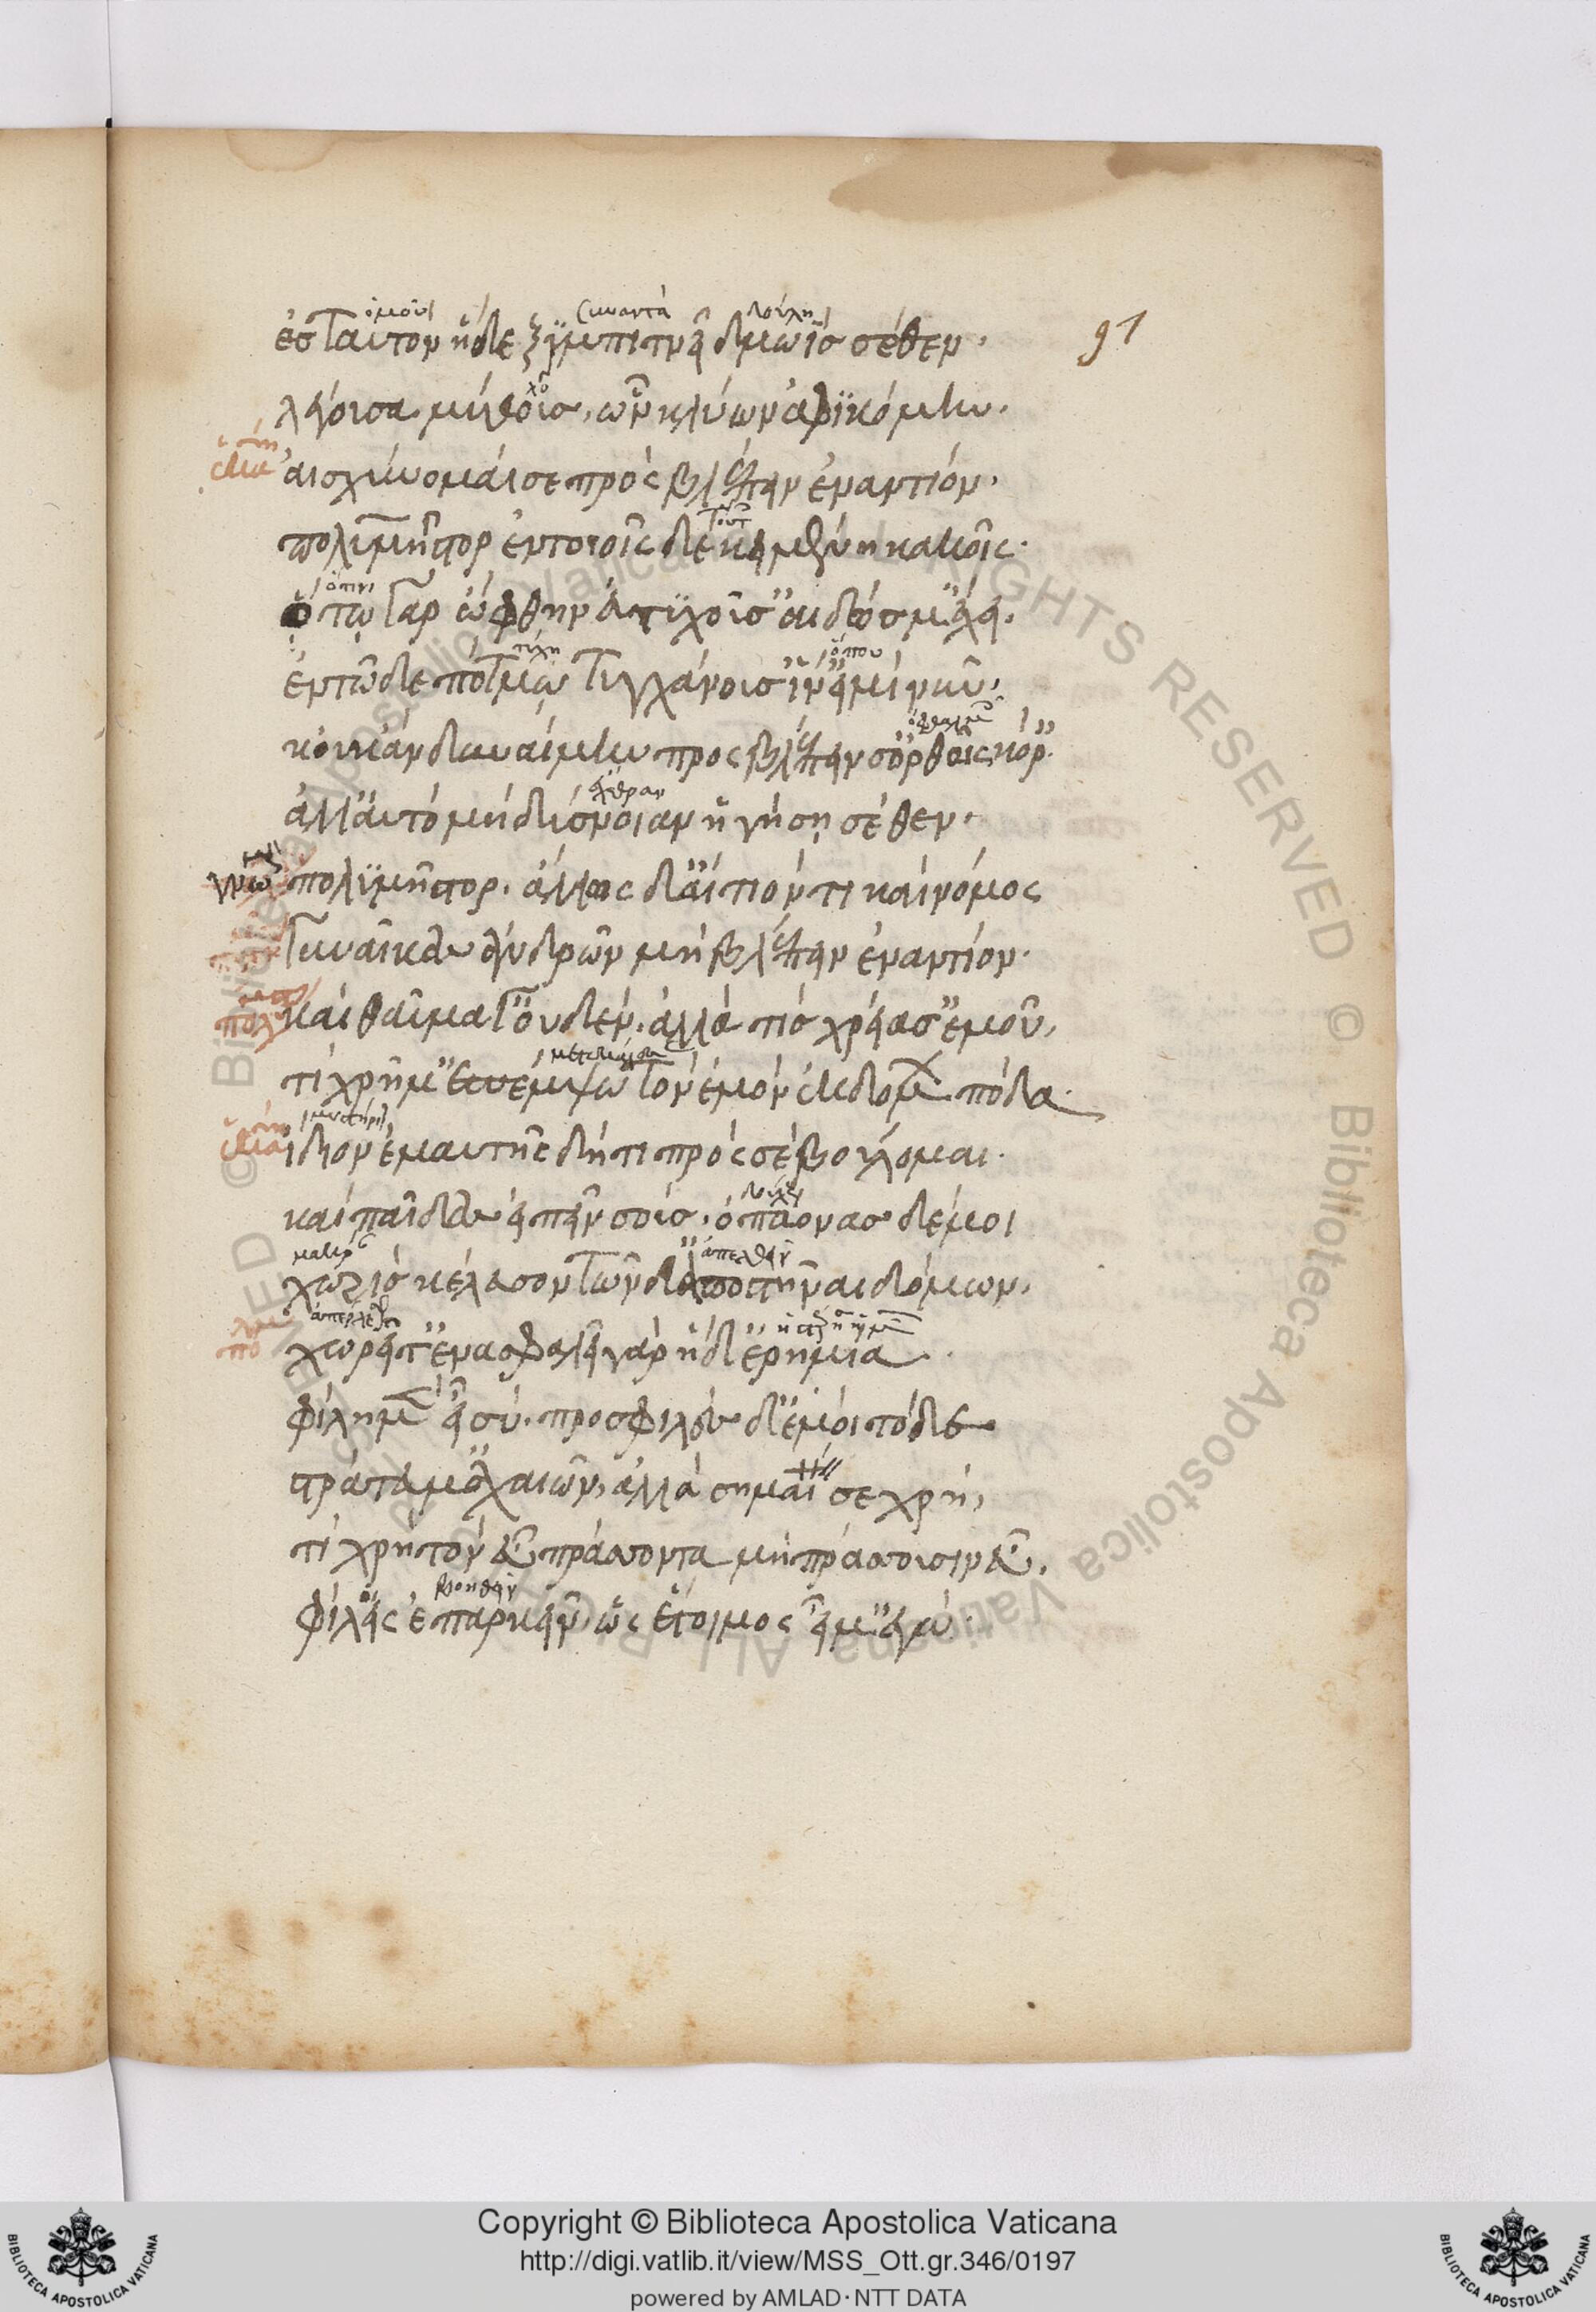 91
ὁμοῦ συναντᾶ δούλη
ἐς ταυτὸν ἥδε ξυμπίτνει δμωὶς σέθεν.
λέγουσα μύθους, ὧν κλύων ἀφικόμην.
αἰσχύνομαί σε προσβλέπειν ἐναντίον.
πολυμῆστορ ἐν τοιοῖσδε κειμένη κακοῖς.
ὅτω γὰρ ὤφθην εὐτυχοῦσ' αἰδώς μ' ἔχει.
τύχη ὅπου
ἐν τῶδε πότμω τυγχάνουσ' ἵν' εἰμὶ νῦν.
κοὐκ ἂν δυναίμην προσβλέπειν σ' ὀρθαῖς κόρ
ἔχθραν
ἀλλ' αὐτὸ μὴ δύσνοιαν ἡγήση σέθεν.
πολυμῆστορ. ἄλλως δ' αἴτιόν τι καὶ νόμος
γυναῖκας ἀνδρῶν μὴ βλέπειν ἐναντίον.
καὶ θαῦμά γ' οὐδέν. ἀλλὰ τίς χρεία σ' ἐμοῦ,
τί χρῆμ' ἐπέμψω τὸν ἐμὸν ἐκ δόμ πόδα.
ἴδιον ἐμαυτῆς δή τι πρὸς σὲ βούλομαι.
καὶ παῖδας εἰπεῖν σοὺς. ὀπάονας δέ μοι
ἀπελθεῖν
χωρὶς κέλευσον τῶνδ' ἀποστῆναι δόμων.
χωρεῖτ' ἐν ἀσφαλεῖ γὰρ ἥδ' ἐρημία.
φίλη μ εἶ σύ. προσφιλὲς δ' ἐμοὶ τόδε
στράτευμ' ἀχαιῶν, ἀλλὰ σημαί σε χρή,
τί χρὴ τὸν εὖ πράσσοντα μὴ πράσσουσιν εὖ.
βοηθεῖν
φίλοις ἐπαρκεῖν, ὡς ἕτοιμος εἴμ' ἐγώ.
Copyright © Biblioteca Apostolica Vaticana
http://digi.vatlib.it/view/MSS_Ott.gr.346/0197
powered by AMLAD·NTT DATA